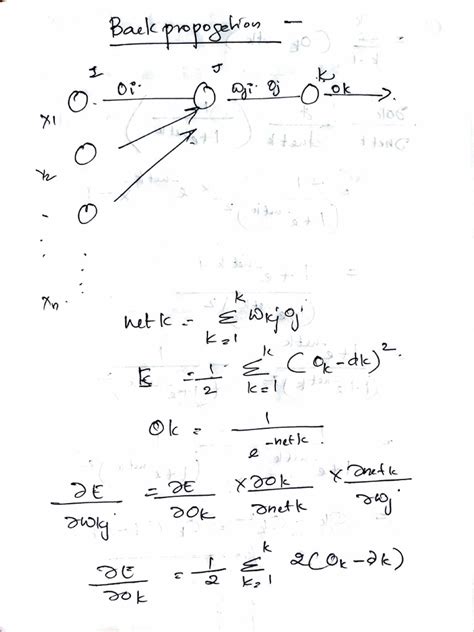 Backpropogation -
I J K
Oi. Wji Oj Ok
x1
x2
xn.
netk = Σ k k=1 Wkj Oj
E = 1/2 Σ k k=1 (Ok - dk)².
Ok = 1 / e^-netk
∂E/∂wkj = ∂E/∂Ok × ∂Ok/∂netk × ∂netk/∂wj
∂E/∂Ok = 1/2 Σ k k=1 2(Ok - ∂k)